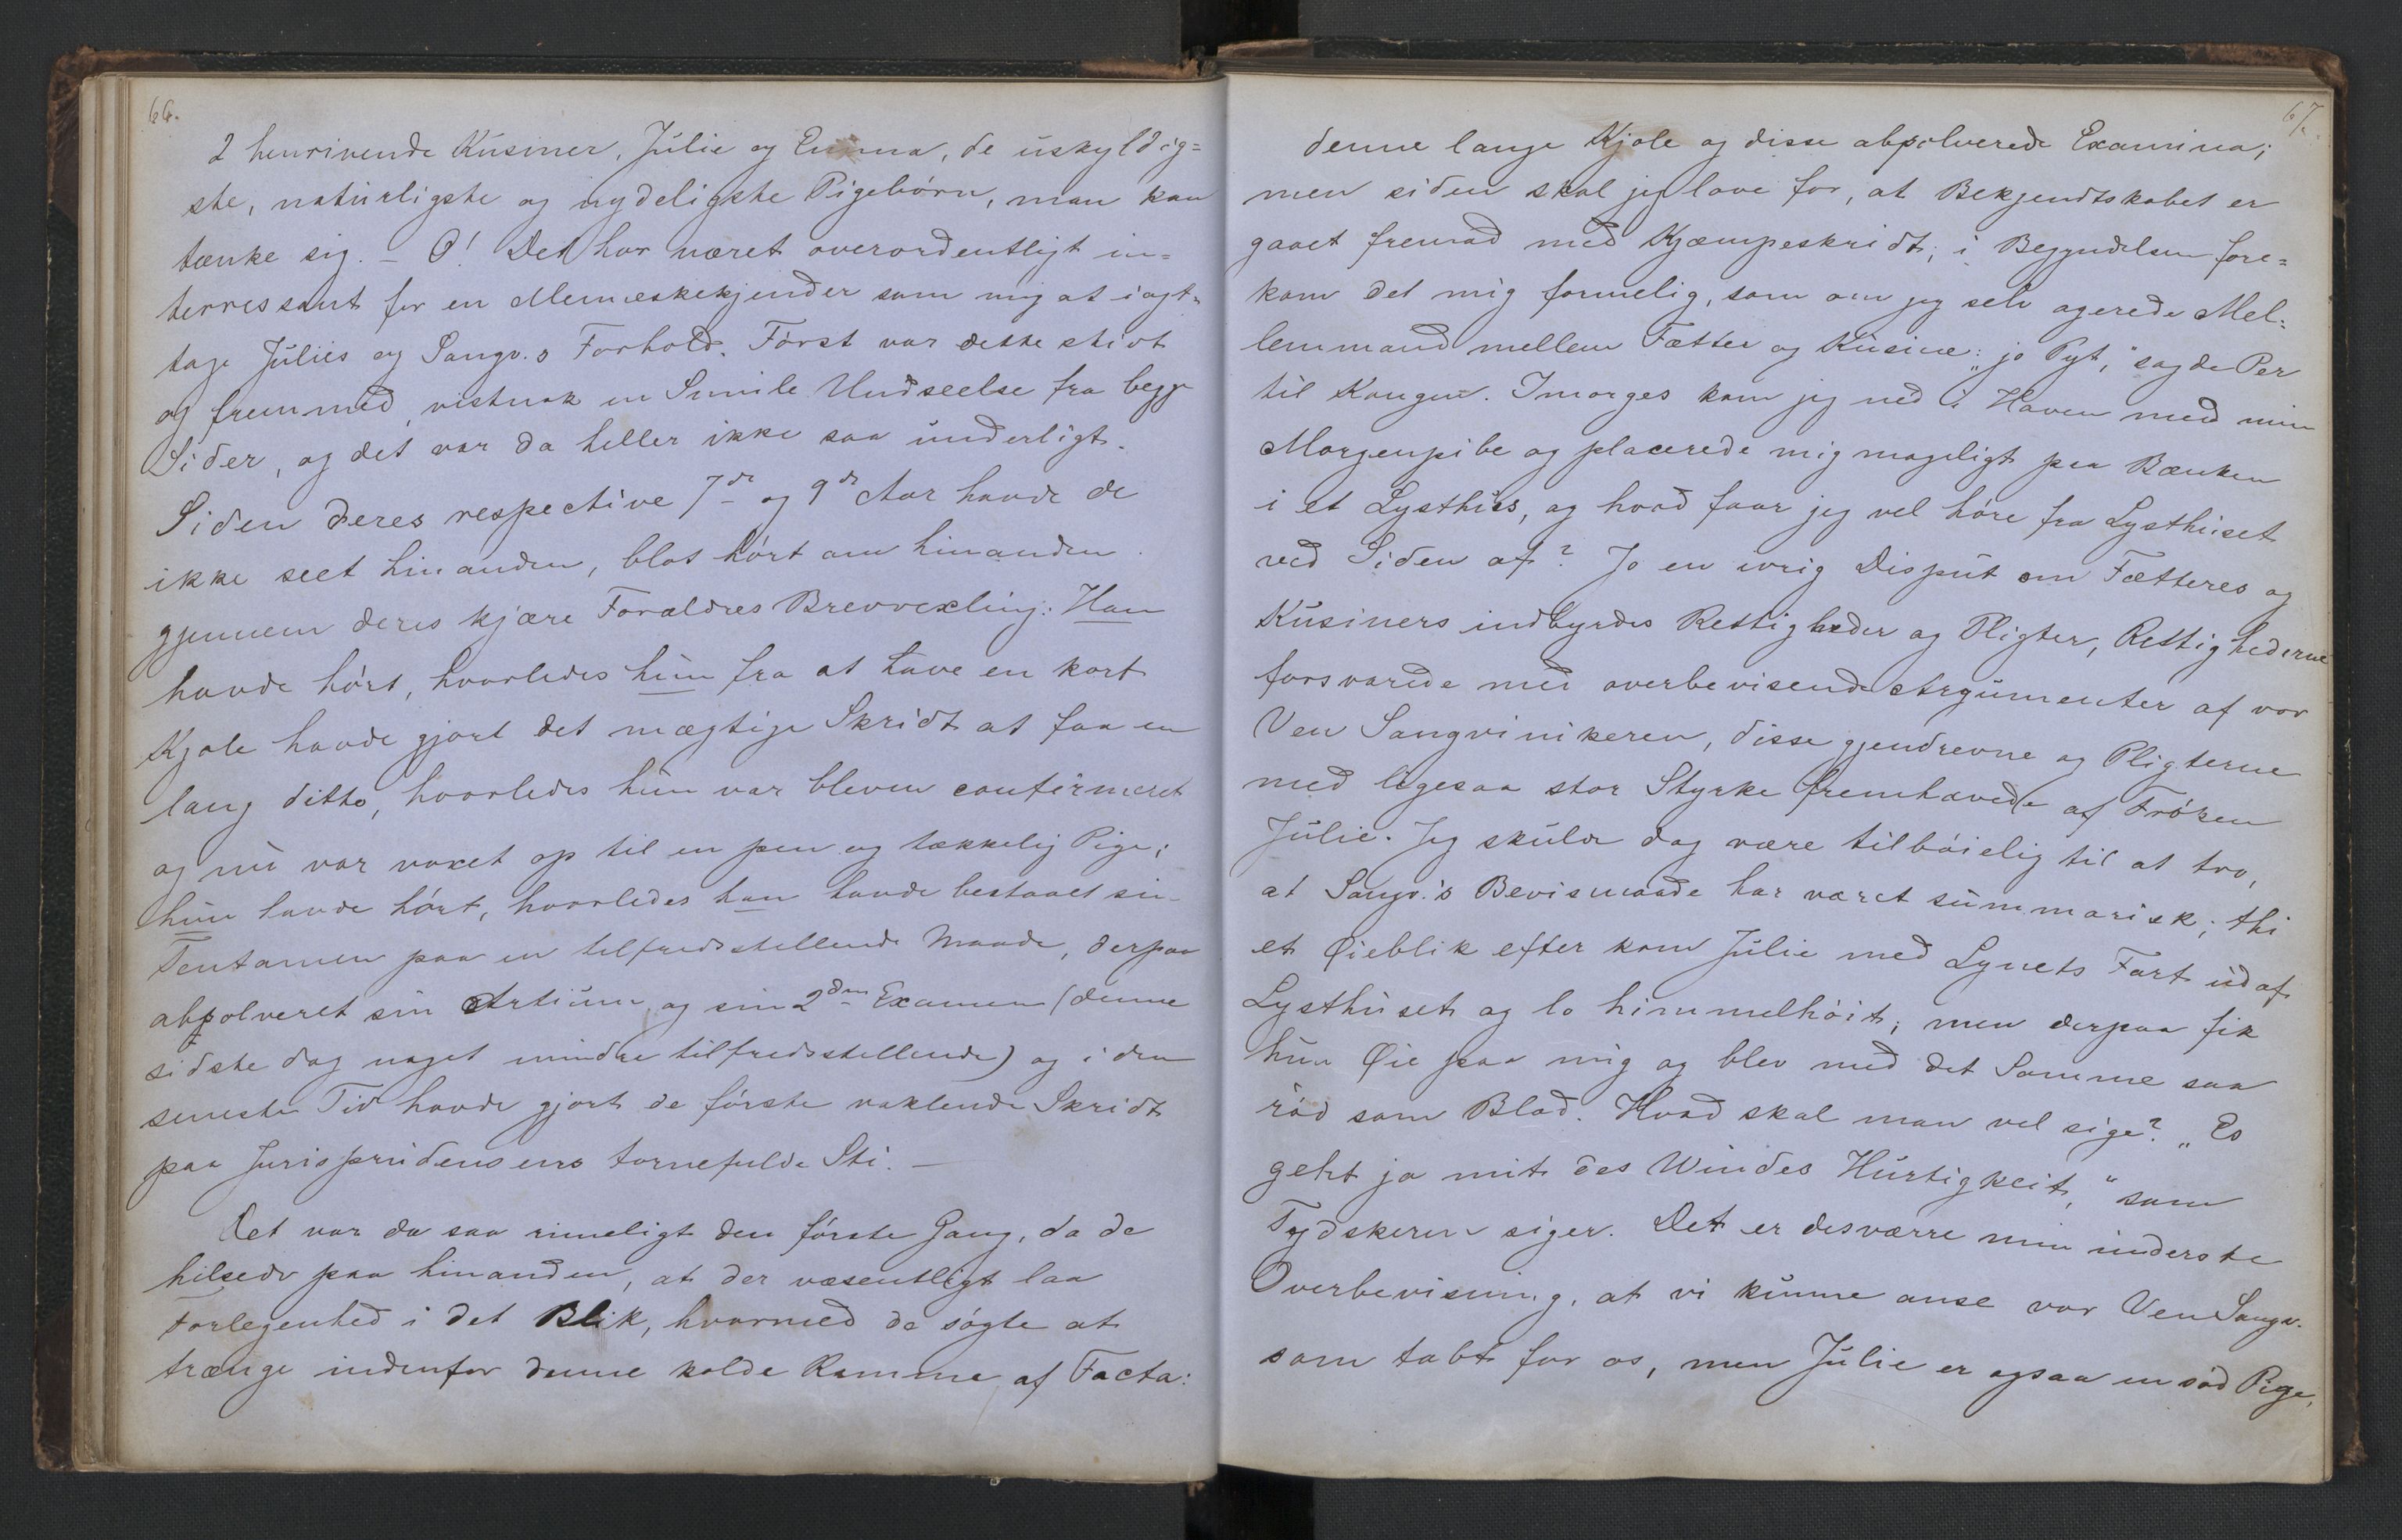 66.
2 henrivende Kusiner, Julie og Emma, de uskyldig=
ste, naturligste og nydeligste Pigebørn, man kan
tænke sig. – O! Det har været overordentligt in=
terressant for en Menneskekjender som mig at iagt=
tage Julies og Sangv.s Forhold. Først var dette stivt
og fremmed, vistnok en Smule Undseelse fra begge
Sider, og det var da heller ikke saa underligt.
Siden deres respective 7de og 9de Aar havde de
ikke seet hinanden, blot hørt om hinanden
gjennem deres kjære Forældres Brevvexling: Han
havde hørt, hvorledes hun fra at have en kort
Kjole havde gjort det mægtige Skridt at faa en
lang ditto, hvorledes hun var bleven confirmeret
og nu var voxet op til en pen og tækkelig Pige;
hun havde hørt, hvorledes han havde bestaaet sin
Tentamen paa en tilfredsstellende Maade, derpaa
absolveret sin Artium og sin 2den Examen (denne
sidste dog noget mindre tilfredsstellende) og i den
seneste Tid havde gjort de første vaklende Skridt
paa Jurisprudensens tornefulde Sti. –
Det var da saa rimeligt den første Gang, da de
hilsede paa hinanden, at der væsentligt laa
Forlegenhed i det Blik, hvormed de søgte at
trænge indenfor denne kolde Ramme af Facta:
67.
denne lange Kjole og disse absolverede Examina;
men siden skal jeg love for, at Bekjendtskabet er
gaaet fremad med Kjæmpeskridt; i Begyndelsen fore=
kom det mig formelig, som om jeg selv agerede Mel=
lemmand mellem Fætter og Kusine: „jo Pyt,“ sagde Per
til Kongen. Imorges kom jeg ned i Haven med min
Morgenpibe og placerede mig mageligt paa Bænken
i et Lysthus, og hvad faar jeg vel høre fra Lysthuset
ved Siden af? Jo en ivrig Disput om Fætteres og
Kusiners indbyrdes Rettigheder og Pligter, Rettighederne
forsvarede med overbevisende Argumenter af vor
Ven Sangvinikeren, disse gjendrevne og Pligterne
med ligesaa stor Styrke fremhævede af Frøken
Julie. Jeg skulde dog være tilbøielig til at tro,
at Sangv.'s Bevismaade har været summarisk; thi
et Øieblik efter kom Julie med Lynets Fart ud af
Lysthuset og lo himmelhøit; men derpaa fik
hun Øie paa mig og blev med det Samme saa
rød som Blod. Hvad skal man vel sige? „Es
geht ja mit des Windes Hurtigkeit,“ som
Tydskeren siger. Det er desværre min inderste
Overbevisning, at vi kunne anse vor Ven Sangv.
som tabt for os, men Julie er ogsaa en sød Pige,